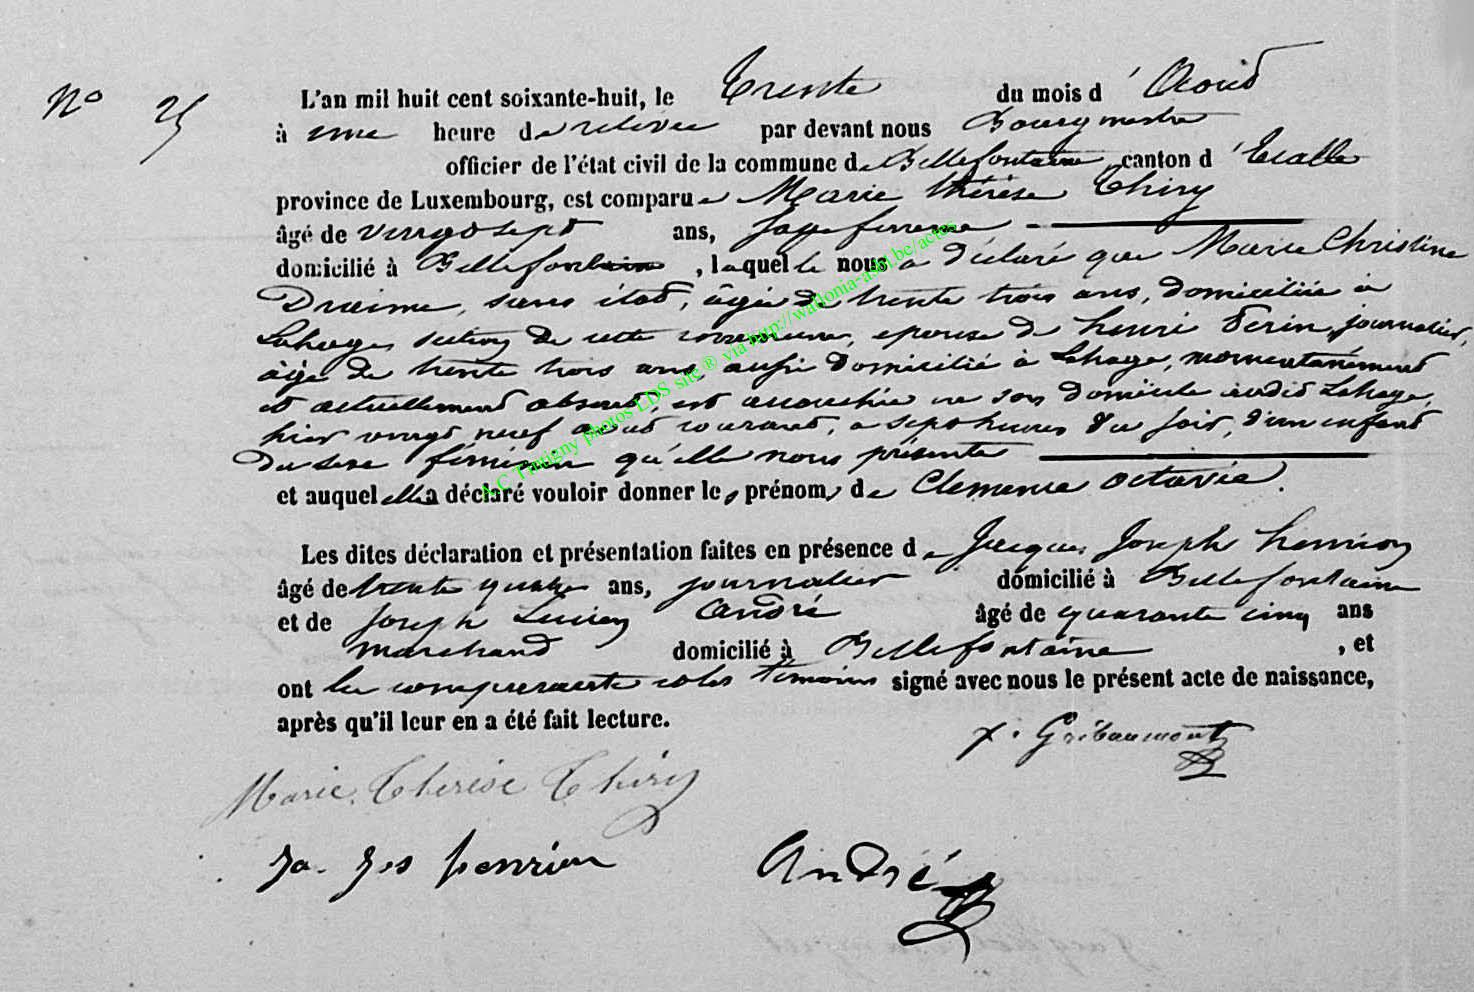 N° 25
L'an mil huit cent soixante-huit, le Trente du mois d'Aout
à une heure de relevée par devant nous Bourgmestre
officier de l'état civil de la commune de Bellefontaine canton d'Etalle
province de Luxembourg, est comparue Marie Thérèse Thiry
âgé de vingt sept ans, Sage femme
domicilié à Bellefontaine, laquelle nous a déclaré que Marie Christine
sans état, âgée de trente trois ans, domiciliée à
Lahage, section de cette commune, épouse de henri journalier,
âgé de trente trois ans, aussi domicilié à Lahage, momentanément
et actuellement absent, est accouchée en son domicile audit Lahage,
hier vingt neuf aout courant, a sept heures du soir, d'un enfant
du sexe féminin qu'elle nous présente
et auquel elle a déclaré vouloir donner les prénoms de Clemence Octavie.
Les dites déclaration et présentation faites en présence de Jacques Joseph henrion
âgé de trente quatre ans, journalier domicilié à Bellefontaine
et de Joseph Lucien André âgé de quarante cinq ans
marchand domicilié à Bellefontaine, et
ont la comparante et les témoins signé avec nous le présent acte de naissance,
après qu'il leur en a été fait lecture.
Gribaumont
Marie Thérèse Thiry
Ja. Jos henrion André
A.C Tintigny photos EDS site ® via http://wallonia-asbl.be/actes